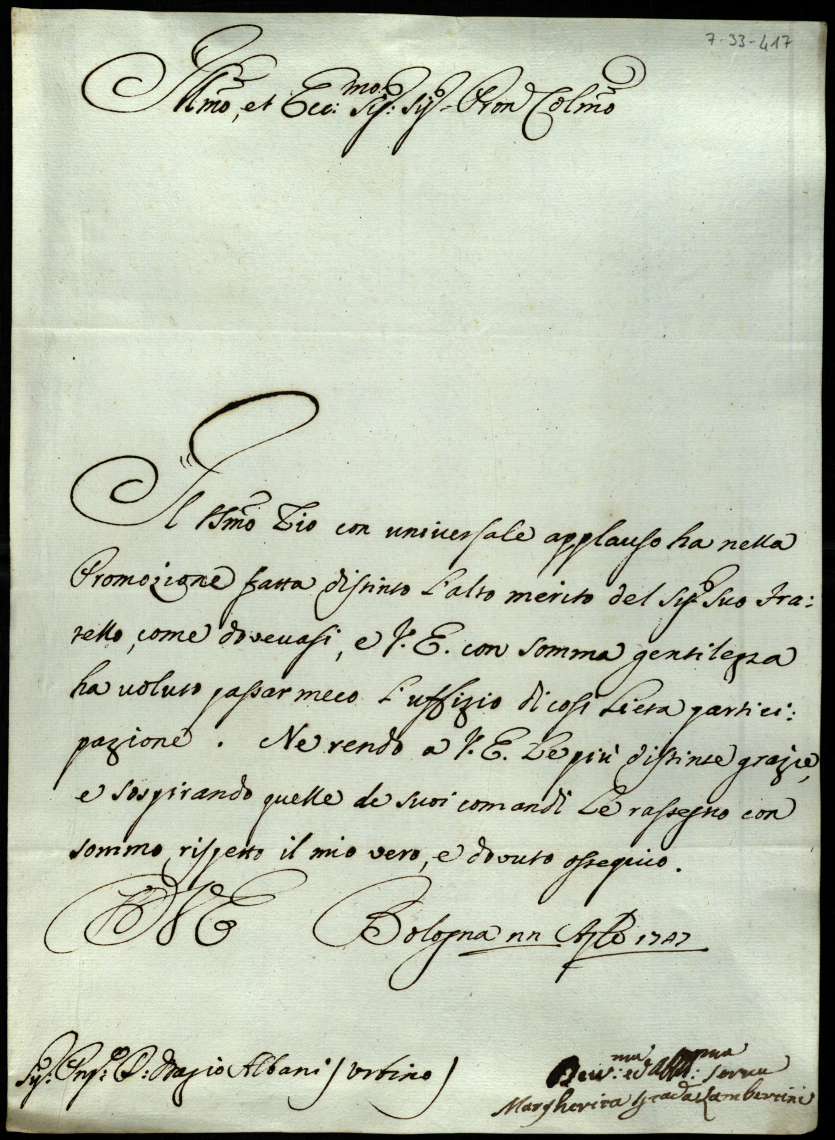 7-33-417
Illmo, et Ecc:mo Sigr: Sigr Pron Colmo
Il SSmo Zio con universale applauso ha nella
Promozione fatta distinto l'alto merito del Sigr Suo Fra:
tello, come dovevasi, e V. E. con somma gentilezza
ha voluto passar meco l'uffizio di così lieta parteci:
pazione. Ne rendo a V. E. le più distinte grazie,
e sospirando quelle de suoi comandi le rassegno con
sommo rispetto il mio vero, e dovuto ossequio.
D V E Bologna Aple 1747
Sigr: Pnpe D: Orazio Albani / Urbino /
Dev:ma ed Obbl:ma Serva
Margherita Lambertini